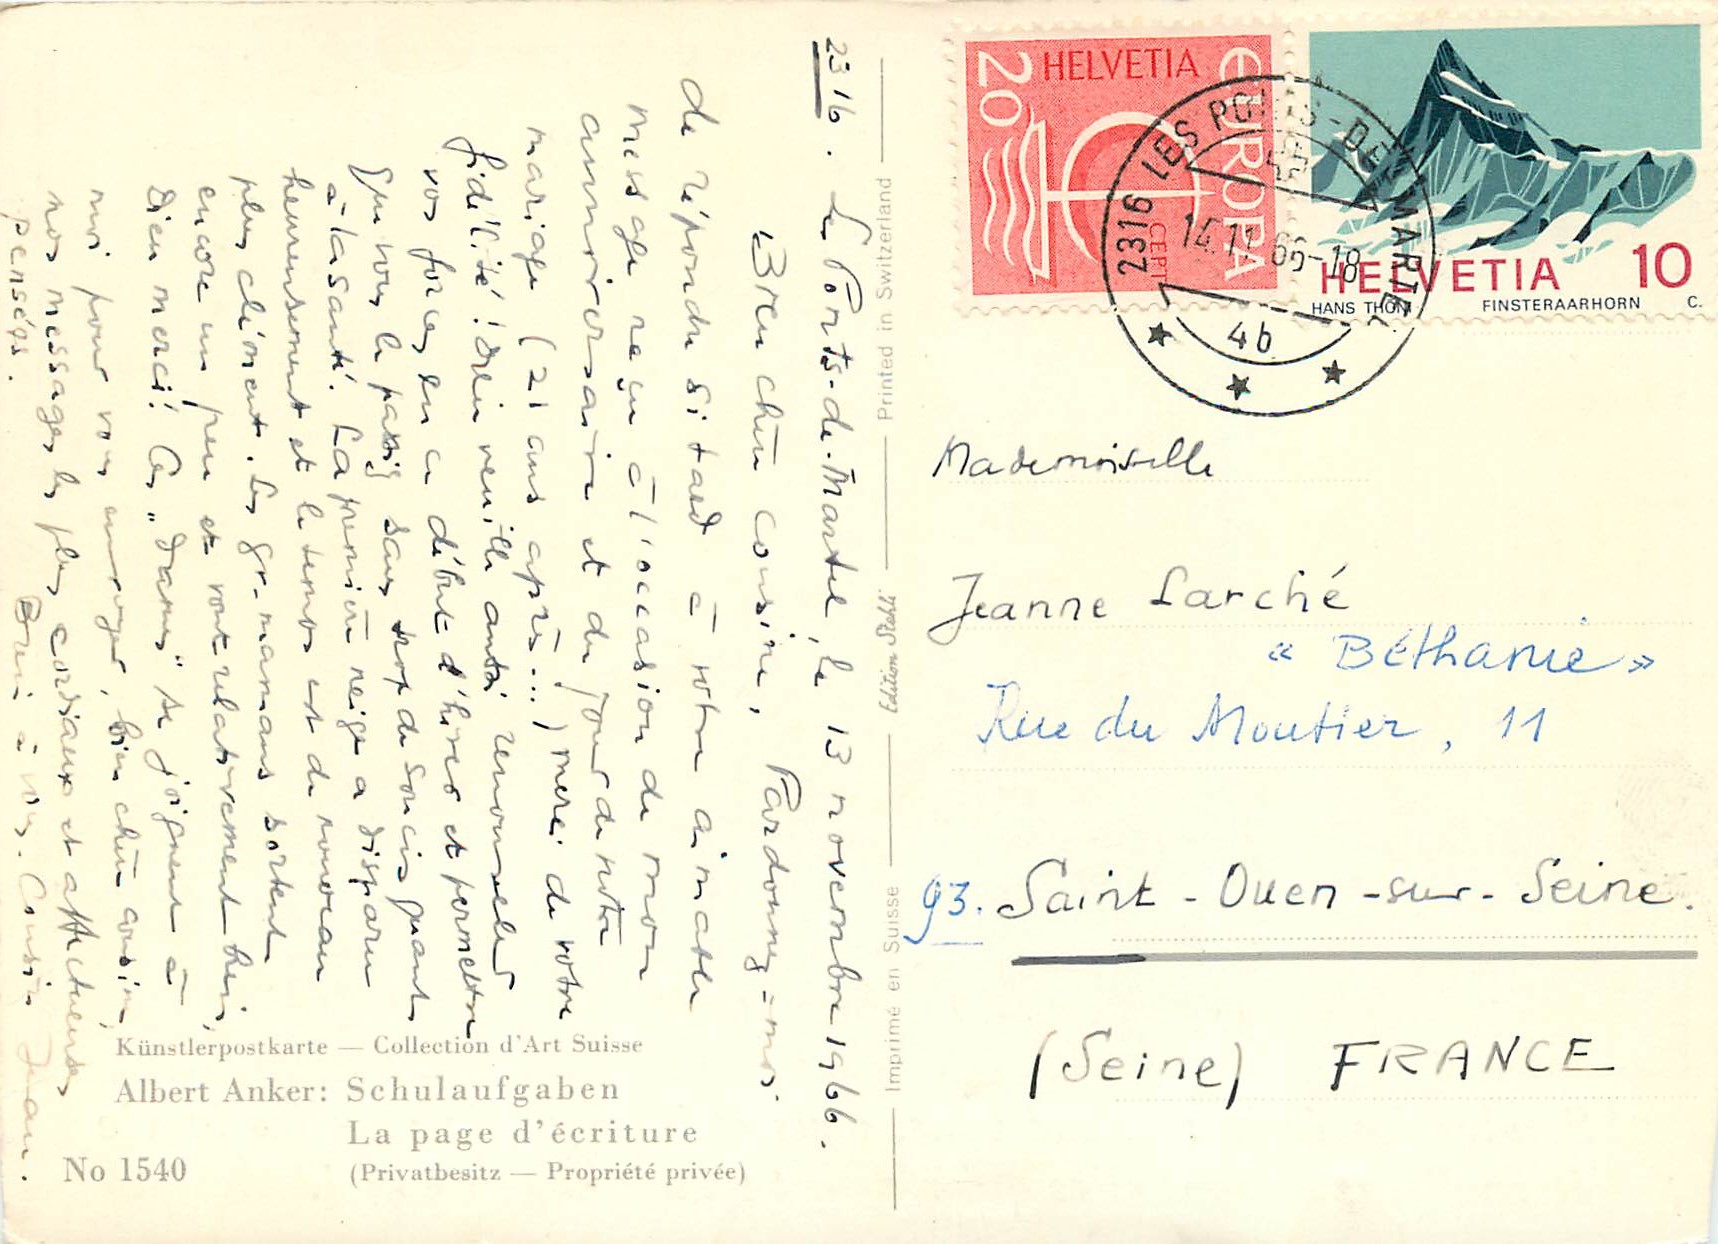 2316. Les Ponts-de-Martel, le 13 novembre 1966.
Bien chère cousine, Pardonnez-moi
de répondre si tard à votre aimable
message reçu à l'occasion de mon
anniversaire et du jour de notre
mariage (21 ans après...) merci de votre
fidélité! Dieu veuille aussi renouveler
vos forces en ce début d'hiver et permettre
que vous le passiez sans trop de soucis quant
à la santé. La première neige a disparu
heureusement et le temps est de nouveau
plus clément. Les gr-mamans sortent
encore un peu et vont relativement bien,
Dieu merci! Ces "dames" se joignent à
moi pour vous envoyer, bien chère cousine,
nos messages les plus cordiaux et affectueuses
pensées. Bien à vous. Cousin Jean.
Künstlerpostkarte — Collection d'Art Suisse
Albert Anker: Schulaufgaben
La page d'écriture
No 1540
(Privatbesitz — Propriété privée)
Imprimé en Suisse
Edition Stehli
Printed in Switzerland
20 HELVETIA
EUROPA
CEPT
HELVETIA 10
HANS THÖNI FINSTERAARHORN C.
2316 LES PONTS-DE-MARTEL
14.11.66-18
4b
Mademoiselle
Jeanne Larché
« Béthanie »
Rue du Moutier, 11
93. Saint-Ouen-sur-Seine.
(Seine) FRANCE